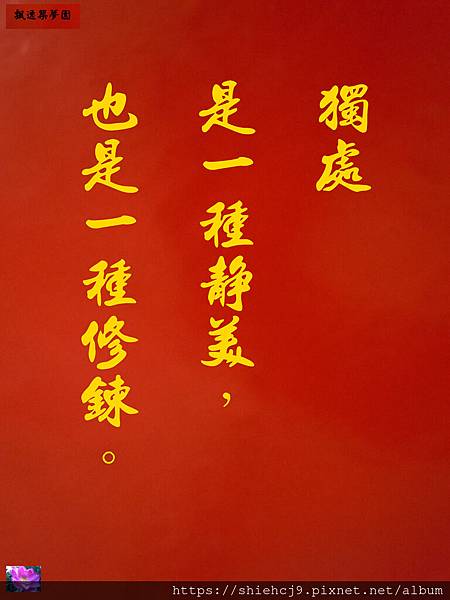 飄逸築夢園
獨處
是一種靜美，
也是一種修鍊。
https://shiehcj9.pixnet.net/album